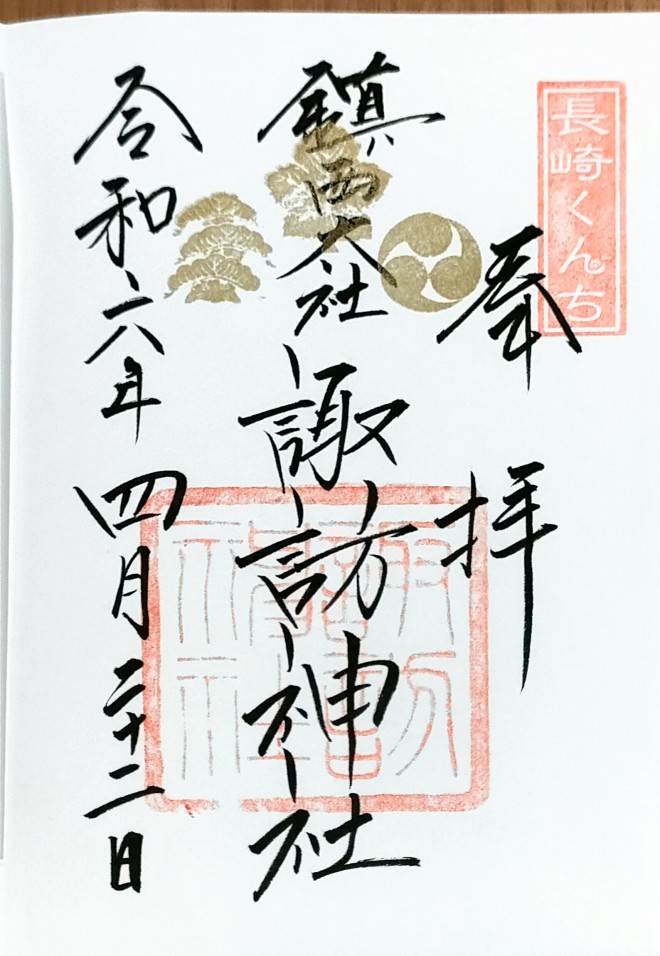 長崎くんち
奉拝
鎮西大社
諏訪神社
令和六年四月二十二日
諏訪神社